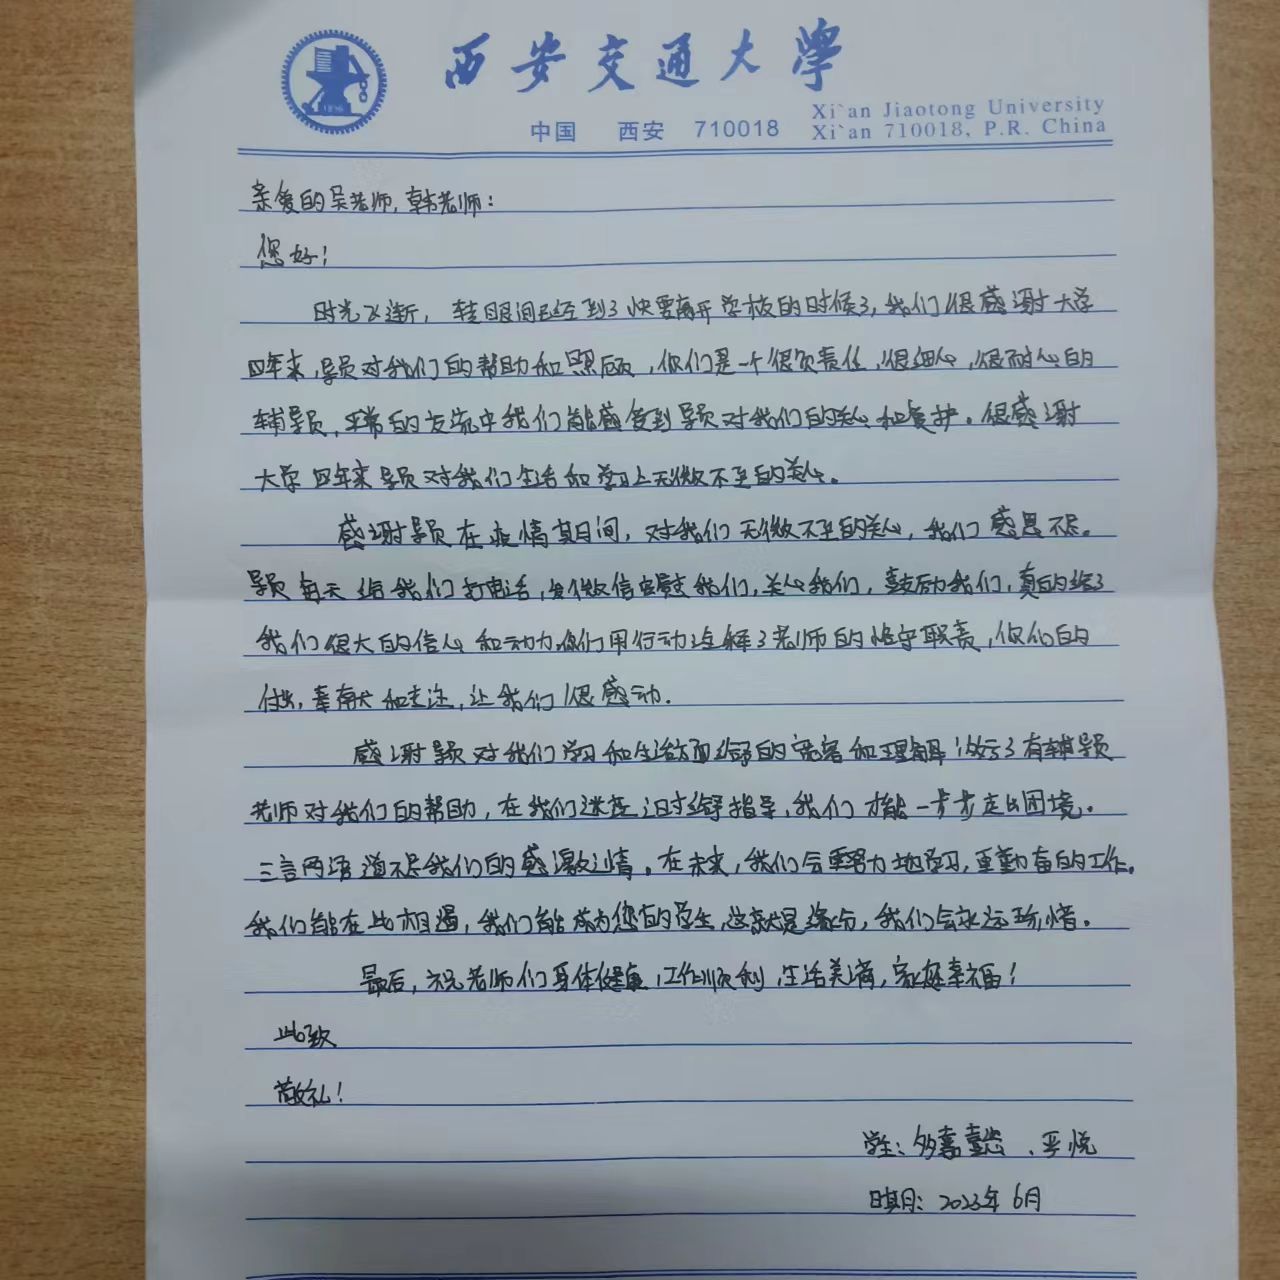 西安交通大學
中国 西安 710018
Xi`an Jiaotong University
Xi`an 710018, P.R. China
亲爱的吴老师,韩老师:
您好!
时光飞逝,转眼间已经到了快要离开学校的时候了,我们很感谢大学
四年来,导员对我们的帮助和照顾,你们是一个很负责任,很细心,很耐心的
辅导员,平常的交流中我们能感受到导员对我们的关心和爱护。很感谢
大学四年来导员对我们生活和学习上无微不至的关心。
感谢导员在疫情期间,对我们无微不至的关心,我们感恩不尽。
导员每天给我们打电话,发微信安慰我们,关心我们,鼓励我们,真的给了
我们很大的信心和动力,你们用行动诠释了老师的恪守职责,你们的
付出,奉献和专注,让我们很感动.
感谢导员对我们学习和生活方面给予的宽容和理解,幸亏了有辅导员
老师对我们的帮助,在我们迷茫之时给予指导,我们才能一步步走出困境。
三言两语道不尽我们的感激之情。在未来,我们会更努力地学习,更勤奋的工作。
我们能在此相遇,我们能成为您们的学生,这就是缘分,我们会永远珍惜。
最后,祝老师们身体健康,工作顺利,生活美满,家庭幸福!
此致
敬礼!
学生: 嘉懿、平悦
日期: 2023年6月